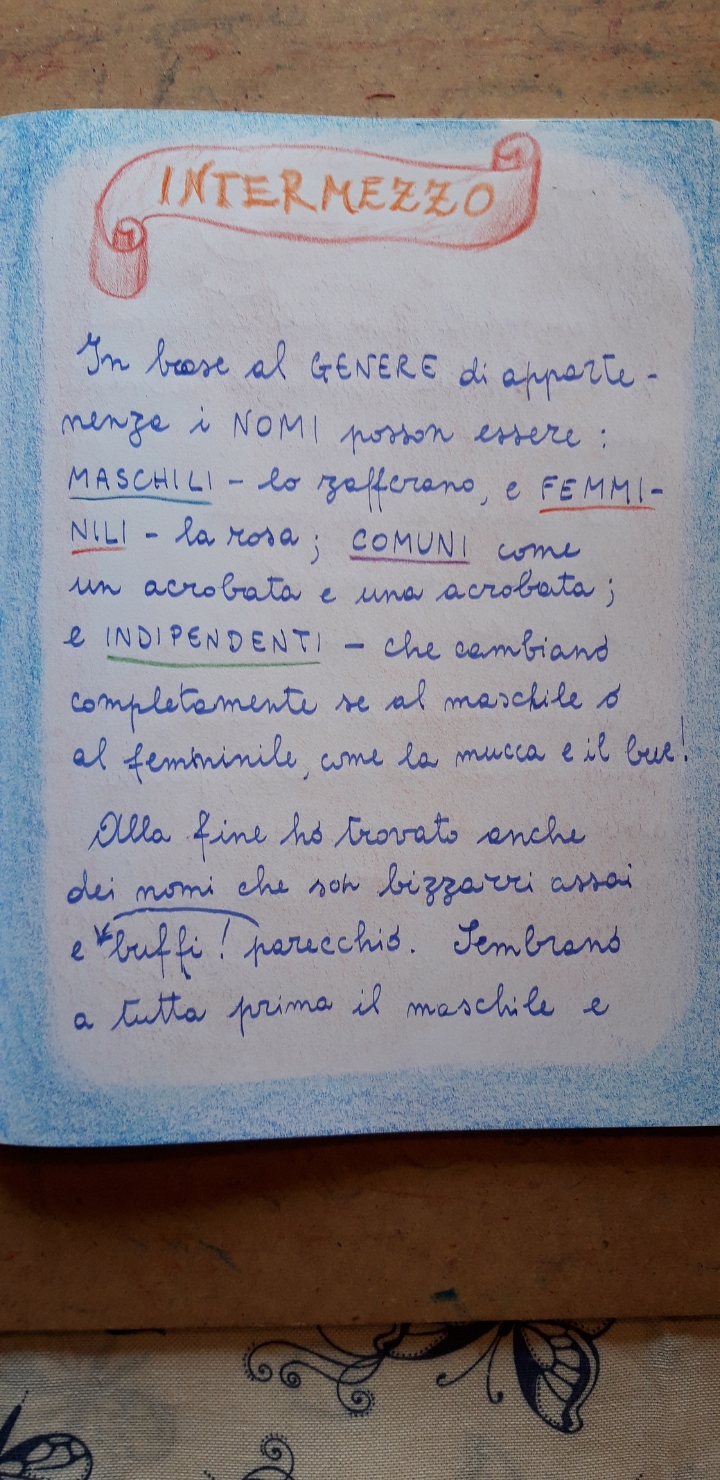 INTERMEZZO
In base al GENERE di apparte-
nenza i NOMI posson essere :
MASCHILI - lo zafferano, e FEMMI-
NILI - la rosa ; COMUNI come
un acrobata e una acrobata ;
e INDIPENDENTI - che cambiano
completamente se al maschile o
al femminile, come la mucca e il bue!
Alla fine ho trovato anche
dei nomi che son bizzarri assai
e buffi ! parecchio. Sembrano
a tutta prima il maschile e